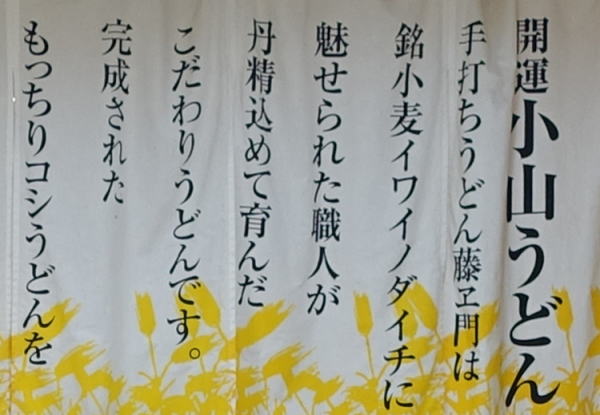 開運小山うどん
手打ちうどん藤ヱ門は
銘小麦イワイノダイチに
魅せられた職人が
丹精込めて育んだ
こだわりうどんです。
完成された
もっちりコシうどんを